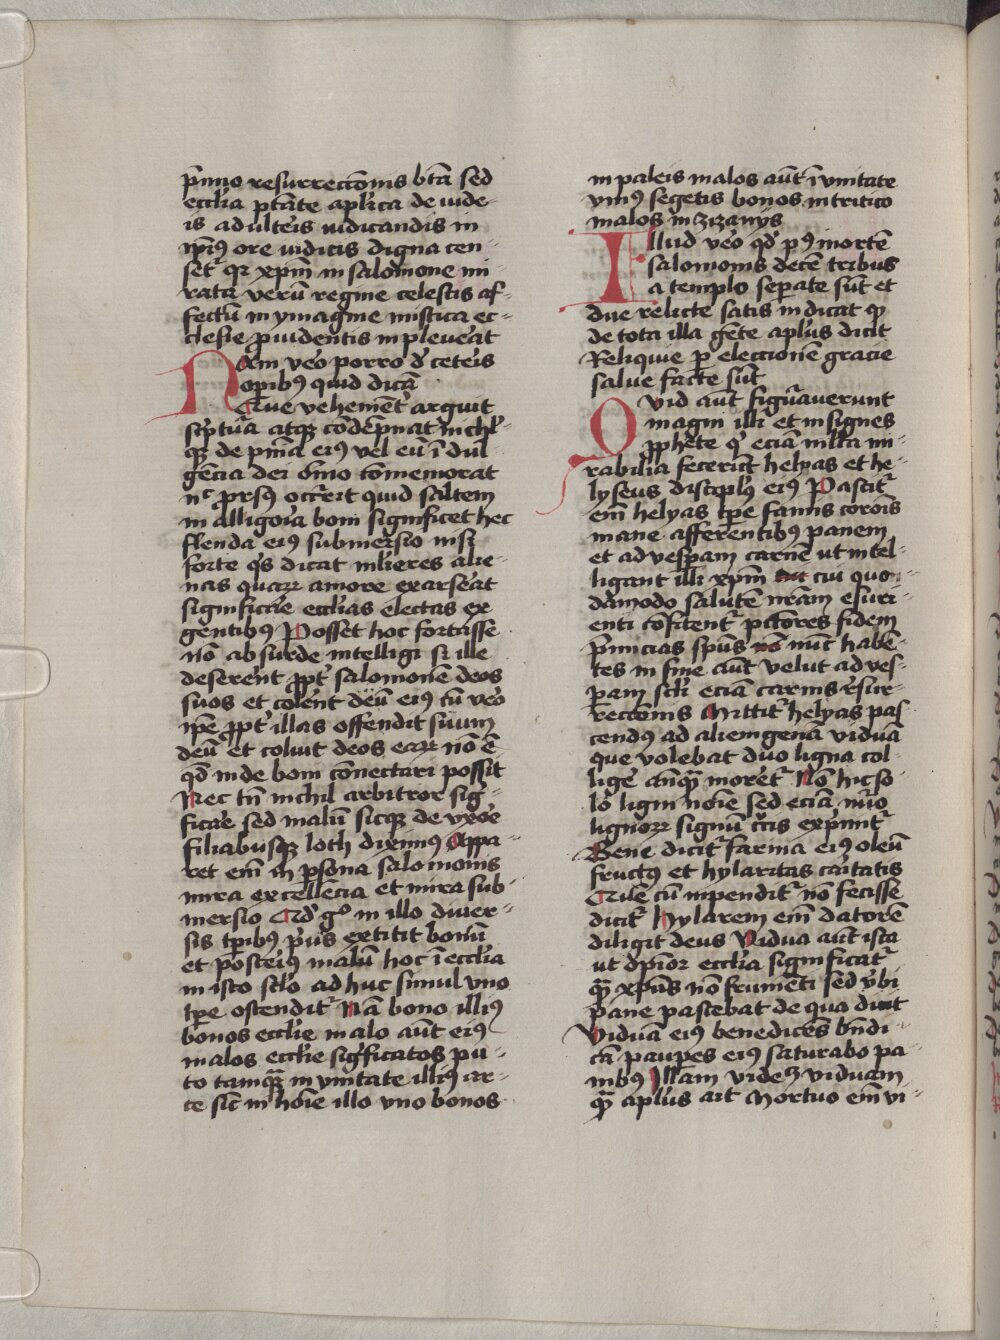 p̄imo resurrecc̄onis btā sed
eccl̄ia ptāte apl̄ica de iude-
is adulteris iudicandis in
ip̄iꝰ ore iudicis digna cen-
set᷑ qꝛ xp̄m in salomone mi-
rata verū regine celestis af-
fectū in ymagine mistica ec-
clesie p̱uidentis inpleverat
Nam vēo porro d̄ ceteris
opibꝰ quid dicā
Que vehement᷑ arguit
sc̄ptūa atqꝫ cōdēpnat nichl̄-
qꝫ de pn̄ia eiꝰ vel eū ī dul-
gēcia dei om̄o cōmemorat
nc̄ p̱rsꝰ occr̄rit quid saltem
in alligoria boni significet hec
flenda eiꝰ submersio nisi
forte qͥs dicat ml̄ieres alie-
nas quaꝝ amore exarserat
significāe eccl̄ias electas ex
gentibꝰ Posset hoc fortasse
nō absurde intelligi si ille
deserent p̱pt᷑ salomonē deos
suos et colent deū eiꝰ cū vēo
ip̄e p̱pt᷑ illas offendit suum
deū et coluit deos eaꝝ nō ē
qd̄ inde boni cōnectari possit
Nec tn̄ nichil arbitror sig-
ficāe sed malū sicqꝫ de vxōe
filiabusqꝫ loth diximꝰ Appa-
ret em̄ in ꝑsona salomonis
mira excellēcia et mira sub-
mersio Qd̄ gͦ in illo diuer-
sis tp̄ibꝰ p̄us extitit bonū
et posteriꝰ malū hoc ī eccl̄ia
in isto scl̄o ad huc simul vno
tp̄e ostendit᷑ Nā bono illiꝰ
bonos eccl̄ie malo aūt eiꝰ
malos eccl̄ie sigficatos pu-
to tamqꝫ̄ in vnitate illiꝰ ar-
ce sic̄ in hōie illo vno bonos
in paleis malos aūt ī vnitate
vniꝰ segetis bonos in tritico
malos in zizanijs
Illud vēo qd̄ pꝰ mortē
salomonis decē tribus
a templo seꝑate sūt et
due relicte satis indicat ꝙ
de tota illa gēte apl̄us dicit
Relique ꝑ eleccionē gracie
salue facte sūt
Quid aūt figūauerunt
magni illi et insignes
p̱phete qͥ eciā ml̄ta mi-
rabilia fecerūt helyas et he-
lyseus discipl̄ꝰ eiꝰ Pascit᷑
em̄ helyas tp̄e famis coruis
mane afferentibꝰ panem
et ad vesꝑam carnē ut intel-
ligant illi xp̄m cui quo-
dāmodo salutē nr̄am esuri-
enti cōfitent᷑ pctōres fidem
p̄micias sp̄us nūc habē-
tes in fine aūt velut ad ves-
ꝑam scl̄i eciā carnis resur-
recc̄onis Mittit᷑ helyas pas-
cendꝰ ad alienigenā viduā
que volebat duo ligna col-
lige᷑ anqꝫ̄ moret᷑ Nō hic so-
lo ligni noīe sed eciā nūo
lignoꝝ signū cͣcis exp̄mit᷑
Bene dicit᷑ farina eiꝰ oleū
fructꝰ et hylaritas caritatis
Que cū inpendit᷑ nō fecisse
dicit᷑ hylarem em̄ datorē
diligit deus Vidua aūt ista
ut dp̄ior eccl̄ia significat᷑
qꝫ̄ xp̄us nō frumēti sed v̄bi
pane pascebat de qua dixit
Viduā eiꝰ benedicēs bn̄di-
cā pauꝑes eiꝰ saturabo pa-
nibꝰ Illam videꝫ viduam
qꝫ̄ apl̄us ait Mortuo em̄ vi-